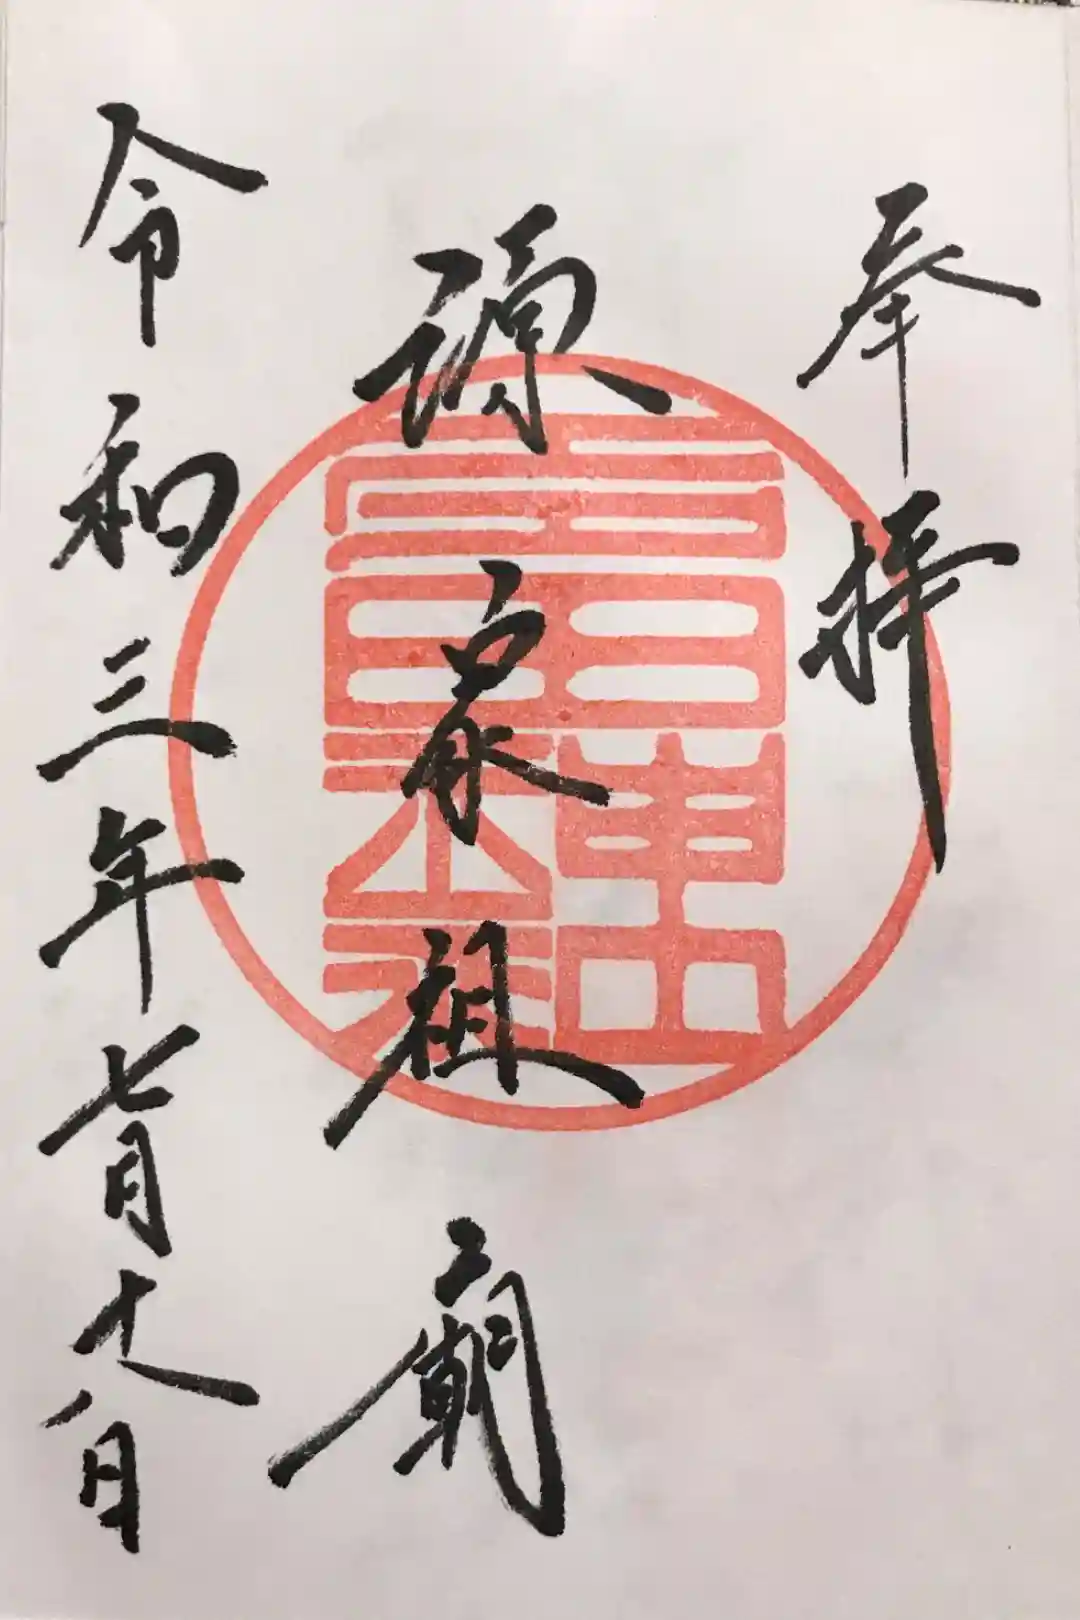 奉拝
源家祖廟
令和三年七月十八日